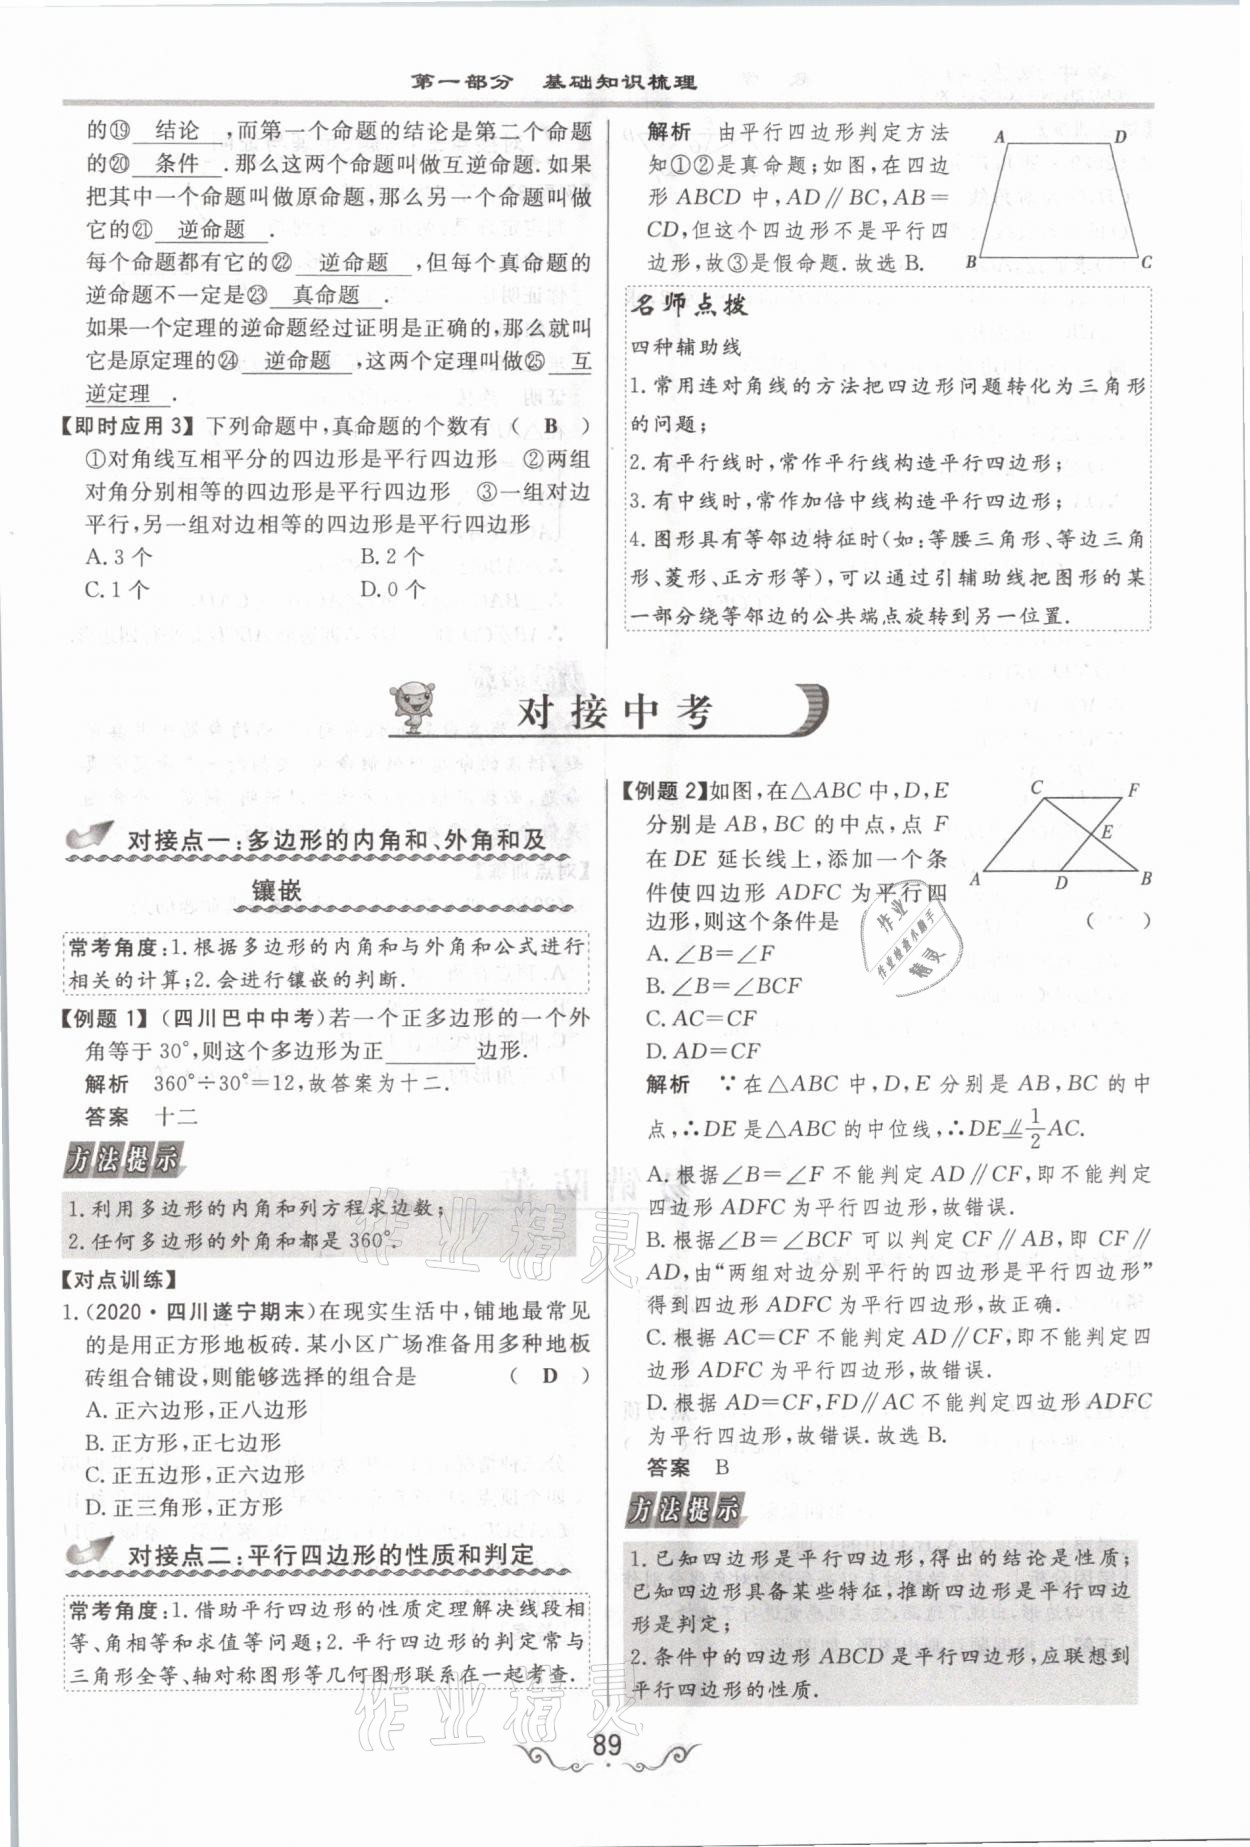 第一部分 基础知识梳理
的⑲ 结论 ,而第一个命题的结论是第二个命题
的⑳ 条件 .那么这两个命题叫做互逆命题.如果
把其中一个命题叫做原命题,那么另一个命题叫做
它的㉑ 逆命题 .
每个命题都有它的㉒ 逆命题 ,但每个真命题的
逆命题不一定是㉓ 真命题 .
如果一个定理的逆命题经过证明是正确的,那么就叫
它是原定理的㉔ 逆命题 ,这两个定理叫做㉕ 互
逆定理 .
【即时应用3】下列命题中,真命题的个数有 ( B )
①对角线互相平分的四边形是平行四边形 ②两组
对角分别相等的四边形是平行四边形 ③一组对边
平行,另一组对边相等的四边形是平行四边形
A.3个 B.2个
C.1个 D.0个
解析 由平行四边形判定方法
知①②是真命题;如图,在四边
形ABCD中,AD∥BC,AB=
CD,但这个四边形不是平行四
边形,故③是假命题.故选B.
A D
B C
名师点拨
四种辅助线
1.常用连对角线的方法把四边形问题转化为三角形
的问题;
2.有平行线时,常作平行线构造平行四边形;
3.有中线时,常作加倍中线构造平行四边形;
4.图形具有等邻边特征时(如:等腰三角形、等边三角
形、菱形、正方形等),可以通过引辅助线把图形的某
一部分绕等邻边的公共端点旋转到另一位置.
对接中考
对接点一:多边形的内角和、外角和及
镶嵌
常考角度:1.根据多边形的内角和与外角和公式进行
相关的计算;2.会进行镶嵌的判断.
【例题1】(四川巴中中考)若一个正多边形的一个外
角等于30°,则这个多边形为正______边形.
解析 360°÷30°=12,故答案为十二.
答案 十二
方法提示
1.利用多边形的内角和列方程求边数;
2.任何多边形的外角和都是360°.
【对点训练】
1.(2020·四川遂宁期末)在现实生活中,铺地最常见
的是用正方形地板砖.某小区广场准备用多种地板
砖组合铺设,则能够选择的组合是 ( D )
A.正六边形,正八边形
B.正方形,正七边形
C.正五边形,正六边形
D.正三角形,正方形
对接点二:平行四边形的性质和判定
常考角度:1.借助平行四边形的性质定理解决线段相
等、角相等和求值等问题;2.平行四边形的判定常与
三角形全等、轴对称图形等几何图形联系在一起考查.
【例题2】如图,在△ABC中,D,E
分别是AB,BC的中点,点F
在DE延长线上,添加一个条
件使四边形ADFC为平行四
边形,则这个条件是 ( )
C F
E
A D B
A.∠B=∠F
B.∠B=∠BCF
C.AC=CF
D.AD=CF
解析 ∵在△ABC中,D,E分别是AB,BC的中
点,∴DE是△ABC的中位线,∴DE⫽1/2AC.
A.根据∠B=∠F不能判定AD∥CF,即不能判定
四边形ADFC为平行四边形,故错误.
B.根据∠B=∠BCF可以判定CF∥AB,即CF∥
AD,由“两组对边分别平行的四边形是平行四边形”
得到四边形ADFC为平行四边形,故正确.
C.根据AC=CF不能判定AD∥CF,即不能判定四
边形ADFC为平行四边形,故错误.
D.根据AD=CF,FD∥AC不能判定四边形ADFC
为平行四边形,故错误.故选B.
答案 B
方法提示
1.已知四边形是平行四边形,得出的结论是性质;
已知四边形具备某些特征,推断四边形是平行四边
形是判定;
2.条件中的四边形ABCD是平行四边形,应联想到
平行四边形的性质.
89
作业
作业检查小助手
精灵
作业精灵
作业精灵